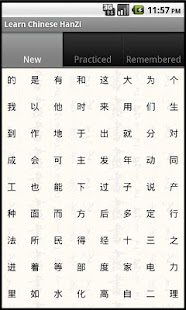 11:57 PM
Learn Chinese HanZi
New Practiced Remembered
的 是 有 和 这 大 为 个
我 以 他 时 来 用 们 生
到 作 地 于 出 就 分 对
成 会 可 主 发 年 动 同
工 也 能 下 过 子 说 产
种 面 而 方 后 多 定 行
法 所 民 得 经 十 三 之
进 着 等 部 度 家 电 力
里 如 水 化 高 自 二 理